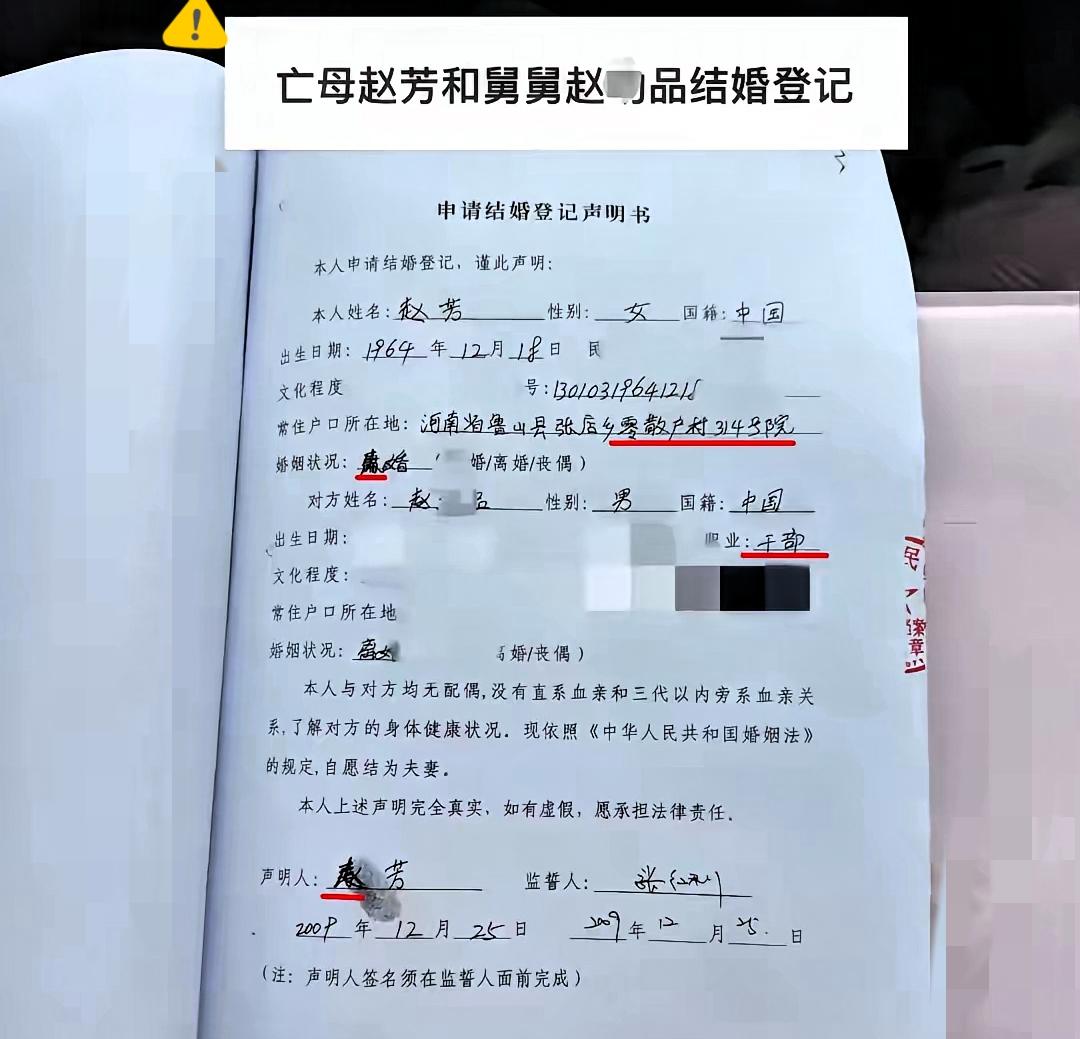 亡母赵芳和舅舅赵 品结婚登记
申请结婚登记声明书
本人申请结婚登记，谨此声明：
本人姓名：赵芳 性别：女 国籍：中国
出生日期：1964年12月18日 民
文化程度 号：13010319641218
常住户口所在地：河南省鲁山县张店乡零散户村314号院
婚姻状况：离婚 婚/离婚/丧偶）
对方姓名：赵 性别：男 国籍：中国
出生日期： 职业：干部
文化程度：
常住户口所在地
婚姻状况：离 离婚/丧偶）
本人与对方均无配偶,没有直系血亲和三代以内旁系血亲关
系,了解对方的身体健康状况。现依照《中华人民共和国婚姻法》
的规定,自愿结为夫妻。
本人上述声明完全真实，如有虚假，愿承担法律责任。
声明人：赵芳 监誓人：张
2009年12月25日 2009年12月25日
（注：声明人签名须在监誓人面前完成）
民
档案
章